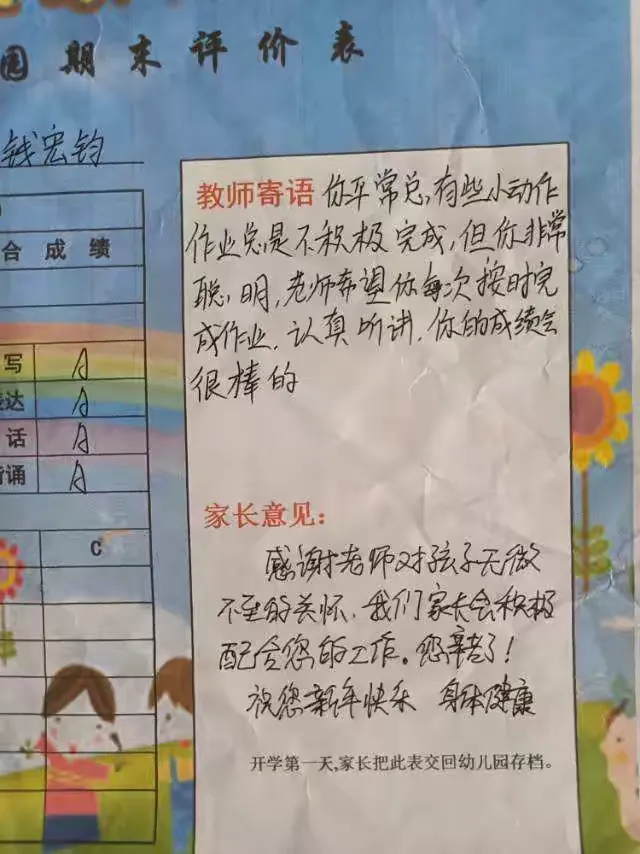 园期末评价表
钱宏钧
合成绩
写 A
达 A
话 A
诵 A
C
教师寄语 你平常总,有些小动作
作业总是不积极完成,但你非常
聪,明,老师希望你每次按时完
成作业,认真听讲,你的成绩会
很棒的
家长意见:
感谢老师对孩子无微
不至的关怀,我们家长会积极
配合您的工作。您辛苦了!
祝您新年快乐 身体健康
开学第一天,家长把此表交回幼儿园存档。